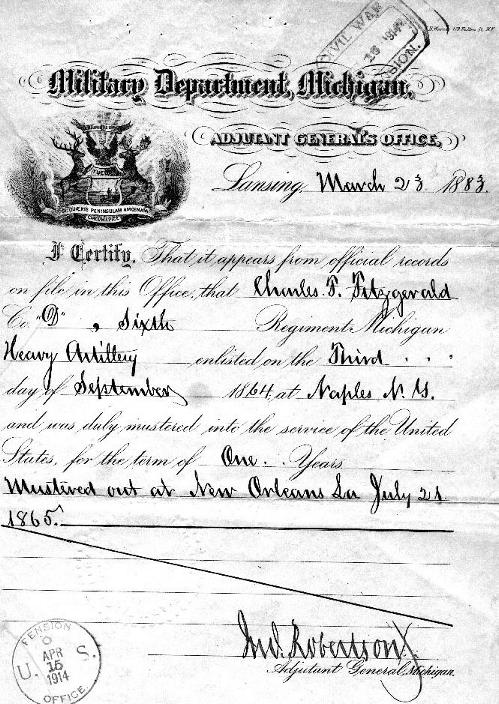 CIVIL WAR
15 1914
Military Department, Michigan.
ADJUTANT GENERAL'S OFFICE,
SI QUAERIS PENINSULAM AMOENAM
CIRCUMSPICE
Lansing, March 23. 1883.
I Certify, That it appears from official records
on file in this Office, that Charles F. Fitzgerald
Co "D", Sixth Regiment Michigan
Heavy Artillery enlisted on the Third . . .
day of September 1864 at Naples N. Y.
and was duly mustered into the service of the United
States, for the term of One . . Years
Mustired out at New Orleans La July 21
1865.
Jno. Robertson
Adjutant General, Michigan.
PENSION
O
U. APR S.
15
1914
OFFICE